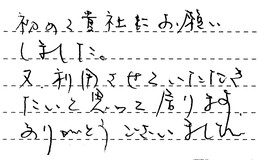 初めて貴社にお願い
しました。
又、利用させていただき
たいと思って居ります。
ありがとうございました